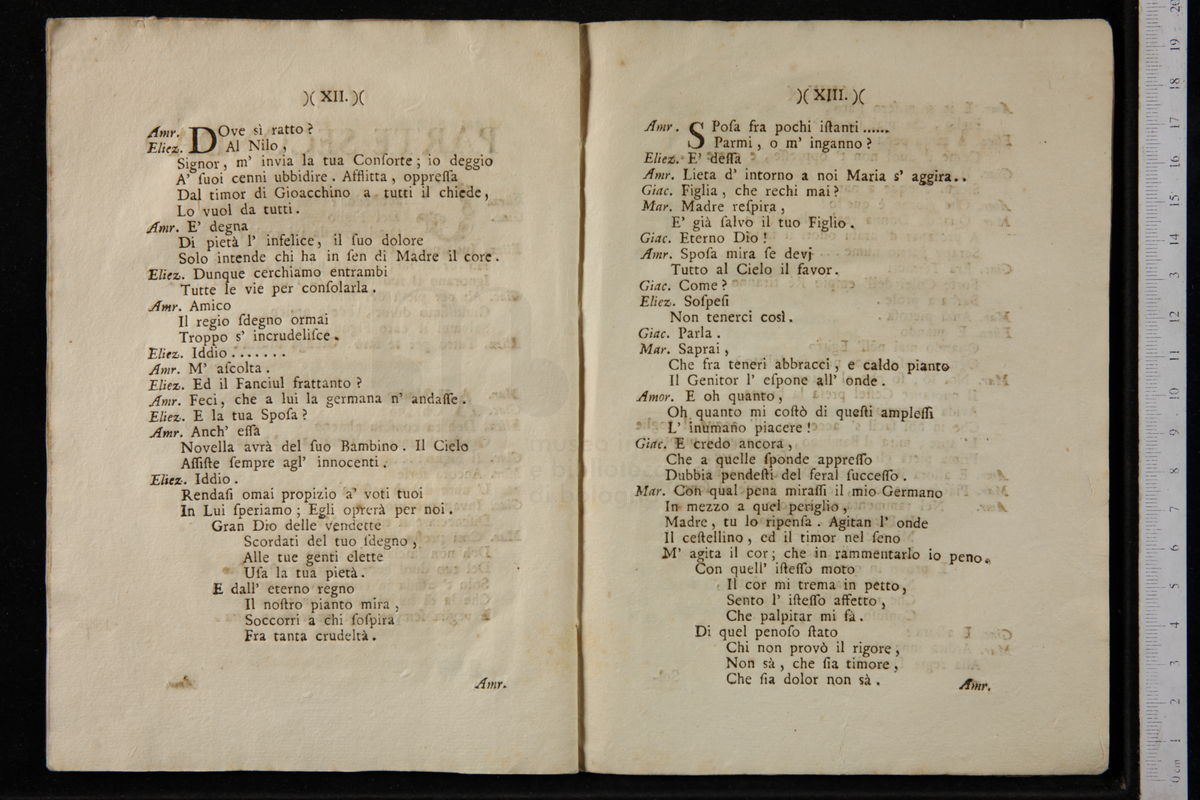 )( XII. )(
Amr. DOve sì ratto?
Eliez. Al Nilo,
Signor, m' invia la tua Conſorte; io deggio
A' ſuoi cenni ubbidire. Afflitta, oppreſſa
Dal timor di Gioacchino a tutti il chiede,
Lo vuol da tutti.
Amr. E' degna
Di pietà l' infelice, il ſuo dolore
Solo intende chi ha in ſen di Madre il core.
Eliez. Dunque cerchiamo entrambi
Tutte le vie per conſolarla.
Amr. Amico
Il regio ſdegno ormai
Troppo s' incrudeliſce.
Eliez. Iddio.......
Amr. M' aſcolta.
Eliez. Ed il Fanciul frattanto?
Amr. Feci, che a lui la germana n' andaſſe.
Eliez. E la tua Spoſa?
Amr. Anch' eſſa
Novella avrà del ſuo Bambino. Il Cielo
Aſſiſte ſempre agl' innocenti.
Eliez. Iddio.
Rendaſi omai propizio a' voti tuoi
In Lui ſperiamo; Egli oprerà per noi.
Gran Dio delle vendette
Scordati del tuo ſdegno,
Alle tue genti elette
Uſa la tua pietà.
E dall' eterno regno
Il noſtro pianto mira,
Soccorri a chi ſoſpira
Fra tanta crudeltà.
Amr.
)( XIII. )(
Amr. SPoſa fra pochi iſtanti......
Parmi, o m' inganno?
Eliez. E' deſſa
Amr. Lieta d' intorno a noi Maria s' aggira..
Giac. Figlia, che rechi mai?
Mar. Madre reſpira,
E' già ſalvo il tuo Figlio.
Giac. Eterno Dio!
Amr. Spoſa mira ſe devi
Tutto al Cielo il favor.
Giac. Come?
Eliez. Soſpeſi
Non tenerci così.
Giac. Parla.
Mar. Saprai,
Che fra teneri abbracci, e caldo pianto
Il Genitor l' eſpone all' onde.
Amor. E oh quanto,
Oh quanto mi coſtò di queſti ampleſſi
L' inumano piacere!
Giac. E credo ancora,
Che a quelle ſponde appreſſo
Dubbia pendeſti del feral ſucceſſo.
Mar. Con qual pena miraſſi il mio Germano
In mezzo a quel periglio,
Madre, tu lo ripenſa. Agitan l' onde
Il ceſtellino, ed il timor nel ſeno
M' agita il cor; che in rammentarlo io peno.
Con quell' iſteſſo moto
Il cor mi trema in petto,
Sento l' iſteſſo affetto,
Che palpitar mi fà.
Di quel penoſo ſtato
Chi non provò il rigore,
Non sà, che ſia timore,
Che ſia dolor non sà.
Amr.